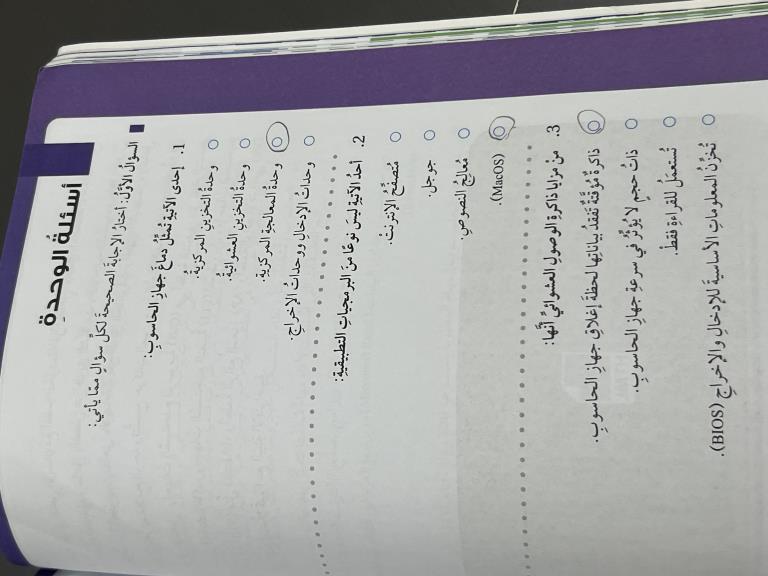 أسئلةُ الوحدةِ
السؤالُ الأوّلُ: أختارُ الإجابةَ الصحيحةَ لكلِّ سؤالٍ ممّا يأتي:
1. إحدى الآتيةِ تُمثّلُ دماغَ جهازِ الحاسوبِ:
وحدةُ التخزينِ المركزيةُ.
وحدةُ التخزينِ العشوائيةُ.
وحدةُ المعالجةِ المركزيةِ.
وحداتُ الإدخالِ ووحداتُ الإخراجِ.
2. أحدُ الآتيةِ ليسَ نوعًا منَ البرمجياتِ التطبيقيةِ:
مُتصفِّحُ الإنترنت.
جوجل.
مُعالِجُ النصوصِ.
(MacOS).
3. منْ مزايا ذاكرةِ الوصولِ العشوائيِّ أنَّها:
ذاكرةٌ مُؤقَّتةٌ تَفقدُ بياناتِها لحظةَ إغلاقِ جهازِ الحاسوبِ.
ذاتُ حجمٍ لا يُؤثِّرُ في سرعةِ جهازِ الحاسوبِ.
تُستعمَلُ للقراءةِ فقطْ.
تُخزِّنُ المعلوماتِ الأساسيةَ للإدخالِ والإخراجِ (BIOS).